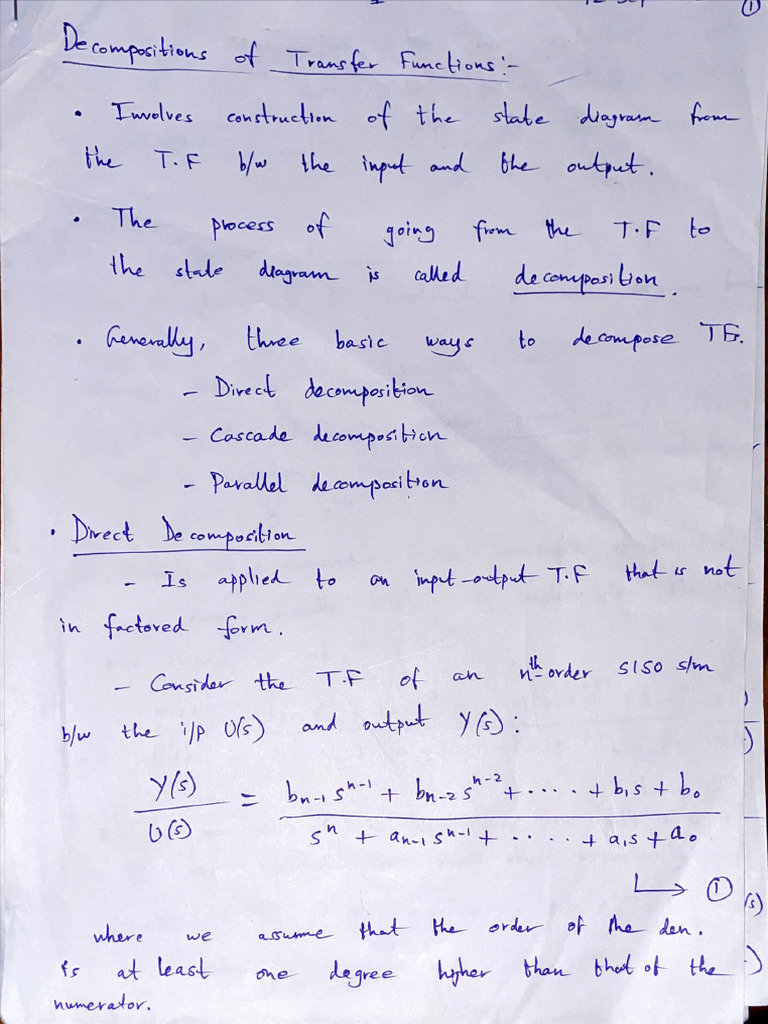 ①
Decompositions of Transfer Functions:-
• Involves construction of the state diagram from
the T.F b/w the input and the output.
• The process of going from the T.F to
the state diagram is called decomposition.
• Generally, three basic ways to decompose TF.
- Direct decomposition
- Cascade decomposition
- Parallel decomposition
• Direct Decomposition
- Is applied to an input-output T.F that is not
in factored form.
- Consider the T.F of an nth order SISO s/m
b/w the i/p U(s) and output Y(s):
Y(s)/U(s) = (bₙ₋₁sⁿ⁻¹ + bₙ₋₂sⁿ⁻² + ..... + b₁s + b₀)/(sⁿ + aₙ₋₁sⁿ⁻¹ + ..... + a₁s + a₀)
↳ ①
where we assume that the order of the den.
is at least one degree higher than that of the
numerator.